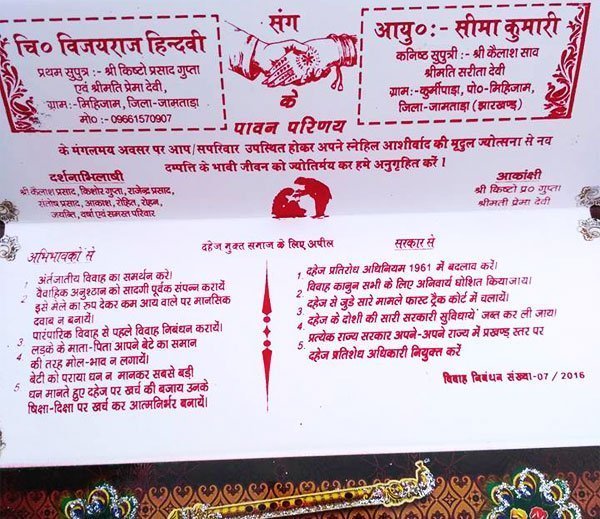 चि० विजयराज हिन्दवी
प्रथम सुपुत्र :- श्री किष्टो प्रसाद गुप्ता
एवं श्रीमति प्रेमा देवी,
ग्राम:-मिहिजाम, जिला-जामताड़ा
मो० :-09661570907
संग
के
आयु० :- सीमा कुमारी
कनिष्ठ सुपुत्री :- श्री कैलाश साव
श्रीमति सरीता देवी
ग्राम:-कुर्मीपाड़ा, पो०-मिहिजाम,
जिला-जामताड़ा (झारखण्ड)
पावन परिणय
के मंगलमय अवसर पर आप/सपरिवार उपस्थित होकर अपने स्नेहिल आशीर्वाद की मृदुल ज्योत्सना से नव
दम्पत्ति के भावी जीवन को ज्योतिर्मय कर हमे अनुगृहित करें ।
दर्शनाभिलाषी
श्री कैलाश प्रसाद, किशोर गुप्ता, राजेन्द्र प्रसाद,
संतोष प्रसाद, आकाश, रोहित, रोहन,
जयन्ति, वर्षा एवं समस्त परिवार
आकांक्षी
श्री किष्टो प्र० गुप्ता
श्रीमती प्रेमा देवी
दहेज मुक्त समाज के लिए अपील
अभिभावकों से
1 अंर्तजातीय विवाह का समर्थन करें।
2 वैवाहिक अनुष्ठान को सादगी पूर्वक संपन्न करायें
इसे मेले का रुप देकर कम आय वाले पर मानसिक
दवाब न बनायें।
3 पारंपारिक विवाह से पहले विवाह निबंधन करायें।
4 लड़के के माता-पिता आपने बेटे का समान
की तरह मोल-भाव न लगायें।
5 बेटी को पराया धन न मानकर सबसे बड़ी
धन मानते हुए दहेज पर खर्च की बजाय उनके
षिक्षा-दिक्षा पर खर्च कर आत्मनिर्भर बनायें।
सरकार से
1. दहेज प्रतिरोध अधिनियम 1961 में बदलाव करें।
2. विवाह कानुन सभी के लिए अनिवार्य घोशित किया जाय।
3. दहेज से जुडे सारे मामले फास्ट ट्रैक कोर्ट में चलायें।
4. दहेज के दोशी की सारी सरकारी सुविधाये जब्त कर ली जाय।
5. प्रत्येक राज्य सरकार अपने-अपने राज्य में प्रखण्ड स्तर पर
दहेज प्रतिशेध अधिकारी नियुक्त करें
विवाह निबंधन संख्या-07 / 2016